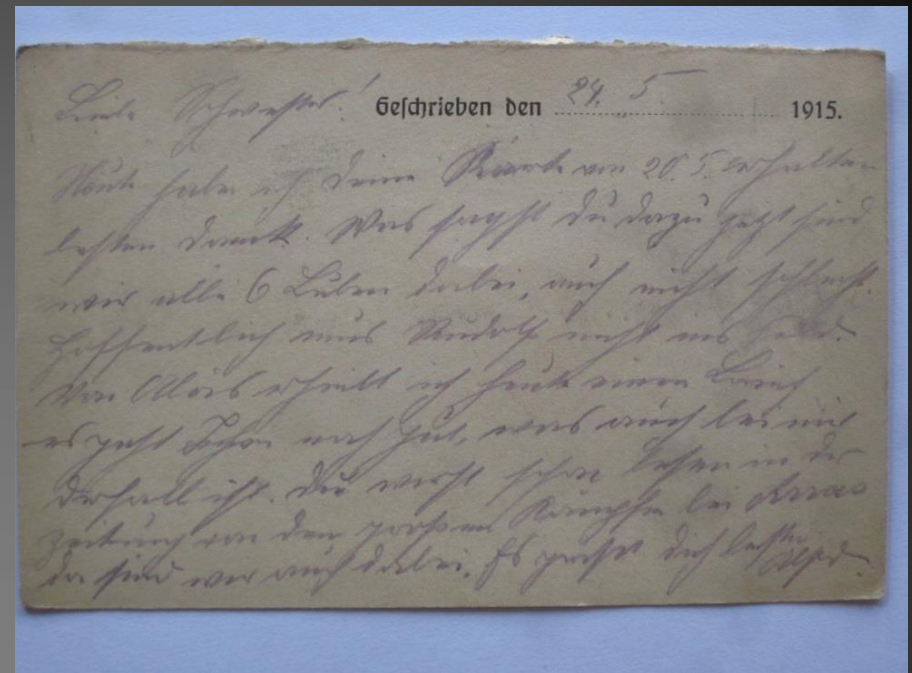 Liebe Schwester! Geschrieben den 24. 5. 1915.
Heute habe ich Deine Karte vom 20. 5. erhalten
besten Dank. Was sagst du dazu jetzt sind
wir alle 6 Buben dabei, auch nicht schlecht.
Hoffentlich mus Rudolf nicht ins
Von Alois erhielt ich heute einen Brief
es geht Ihm noch gut, was auch bei mir
der Fall ist. Du wirst schon lesen in der
Zeitung von den großen Kämpfen bei Arras
da sind wir auch dabei. Es grüßt dich bestens